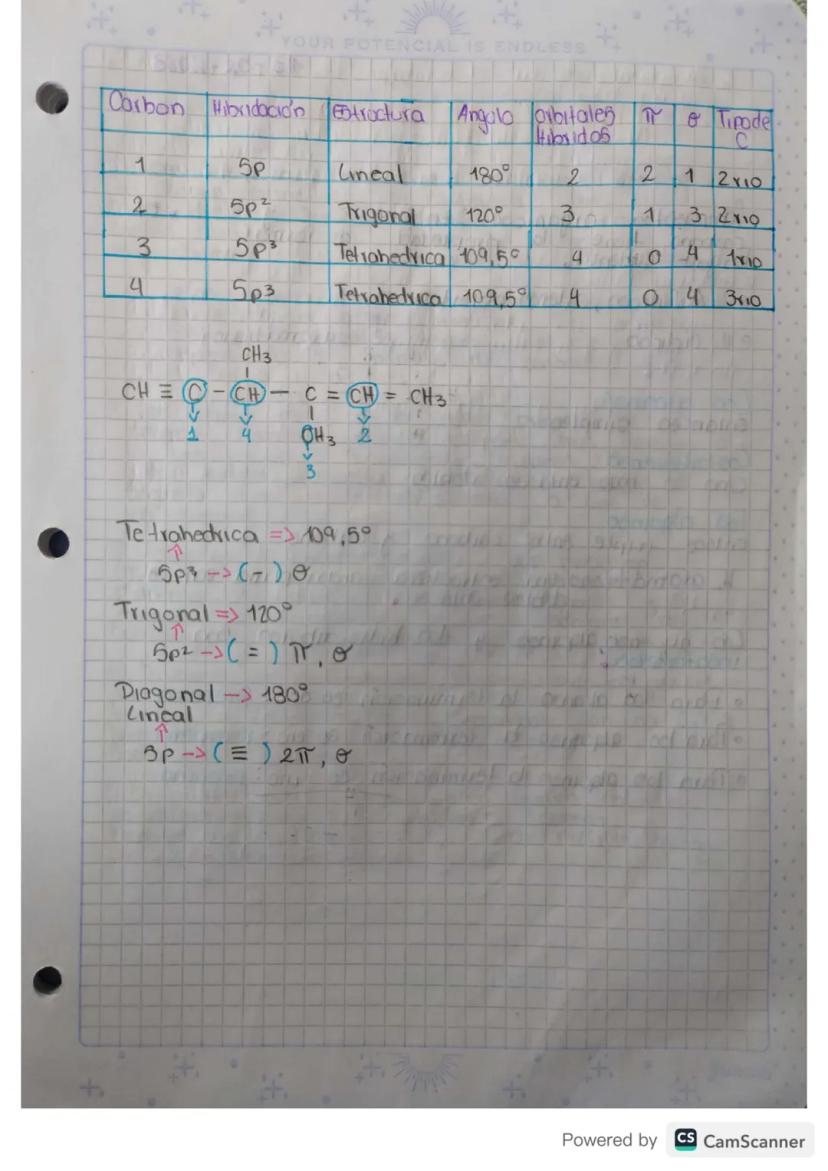 YOUR POTENCIAL IS ENDLESS
Carbon Hibridación Estructura Angulo orbitales Hibridos π θ Tipo de C
1 Sp Lineal 180° 2 2 1 2rio
2 Sp² Trigonal 120° 3 1 3 2rio
3 Sp³ Tetrahedrica 109,5° 4 0 4 1rio
4 Sp3 Tetrahedrica 109,5° 4 0 4 3rio
CH3
CH ≡ C - CH - C = CH = CH3
1 4 CH3 2
3
Tetrahedrica => 109,5°
Sp3 -> (-) θ
Trigonal => 120°
Sp2 -> ( = ) π, θ
Diagonal -> 180°
Lineal
Sp -> ( ≡ ) 2π, θ
Powered by CS CamScanner